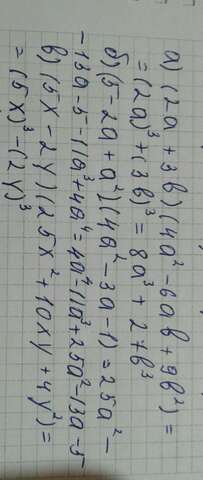 а) (2a + 3b)(4a² - 6ab + 9b²) =
= (2a)³ + (3b)³ = 8a³ + 27b³
б) (5 - 2a + a²)(4a² - 3a - 1) = 25a² -
- 13a - 5 - 11a³ + 4a⁴ = 4a⁴ - 11a³ + 25a² - 13a - 5
в) (5x - 2y)(25x² + 10xy + 4y²) =
= (5x)³ - (2y)³